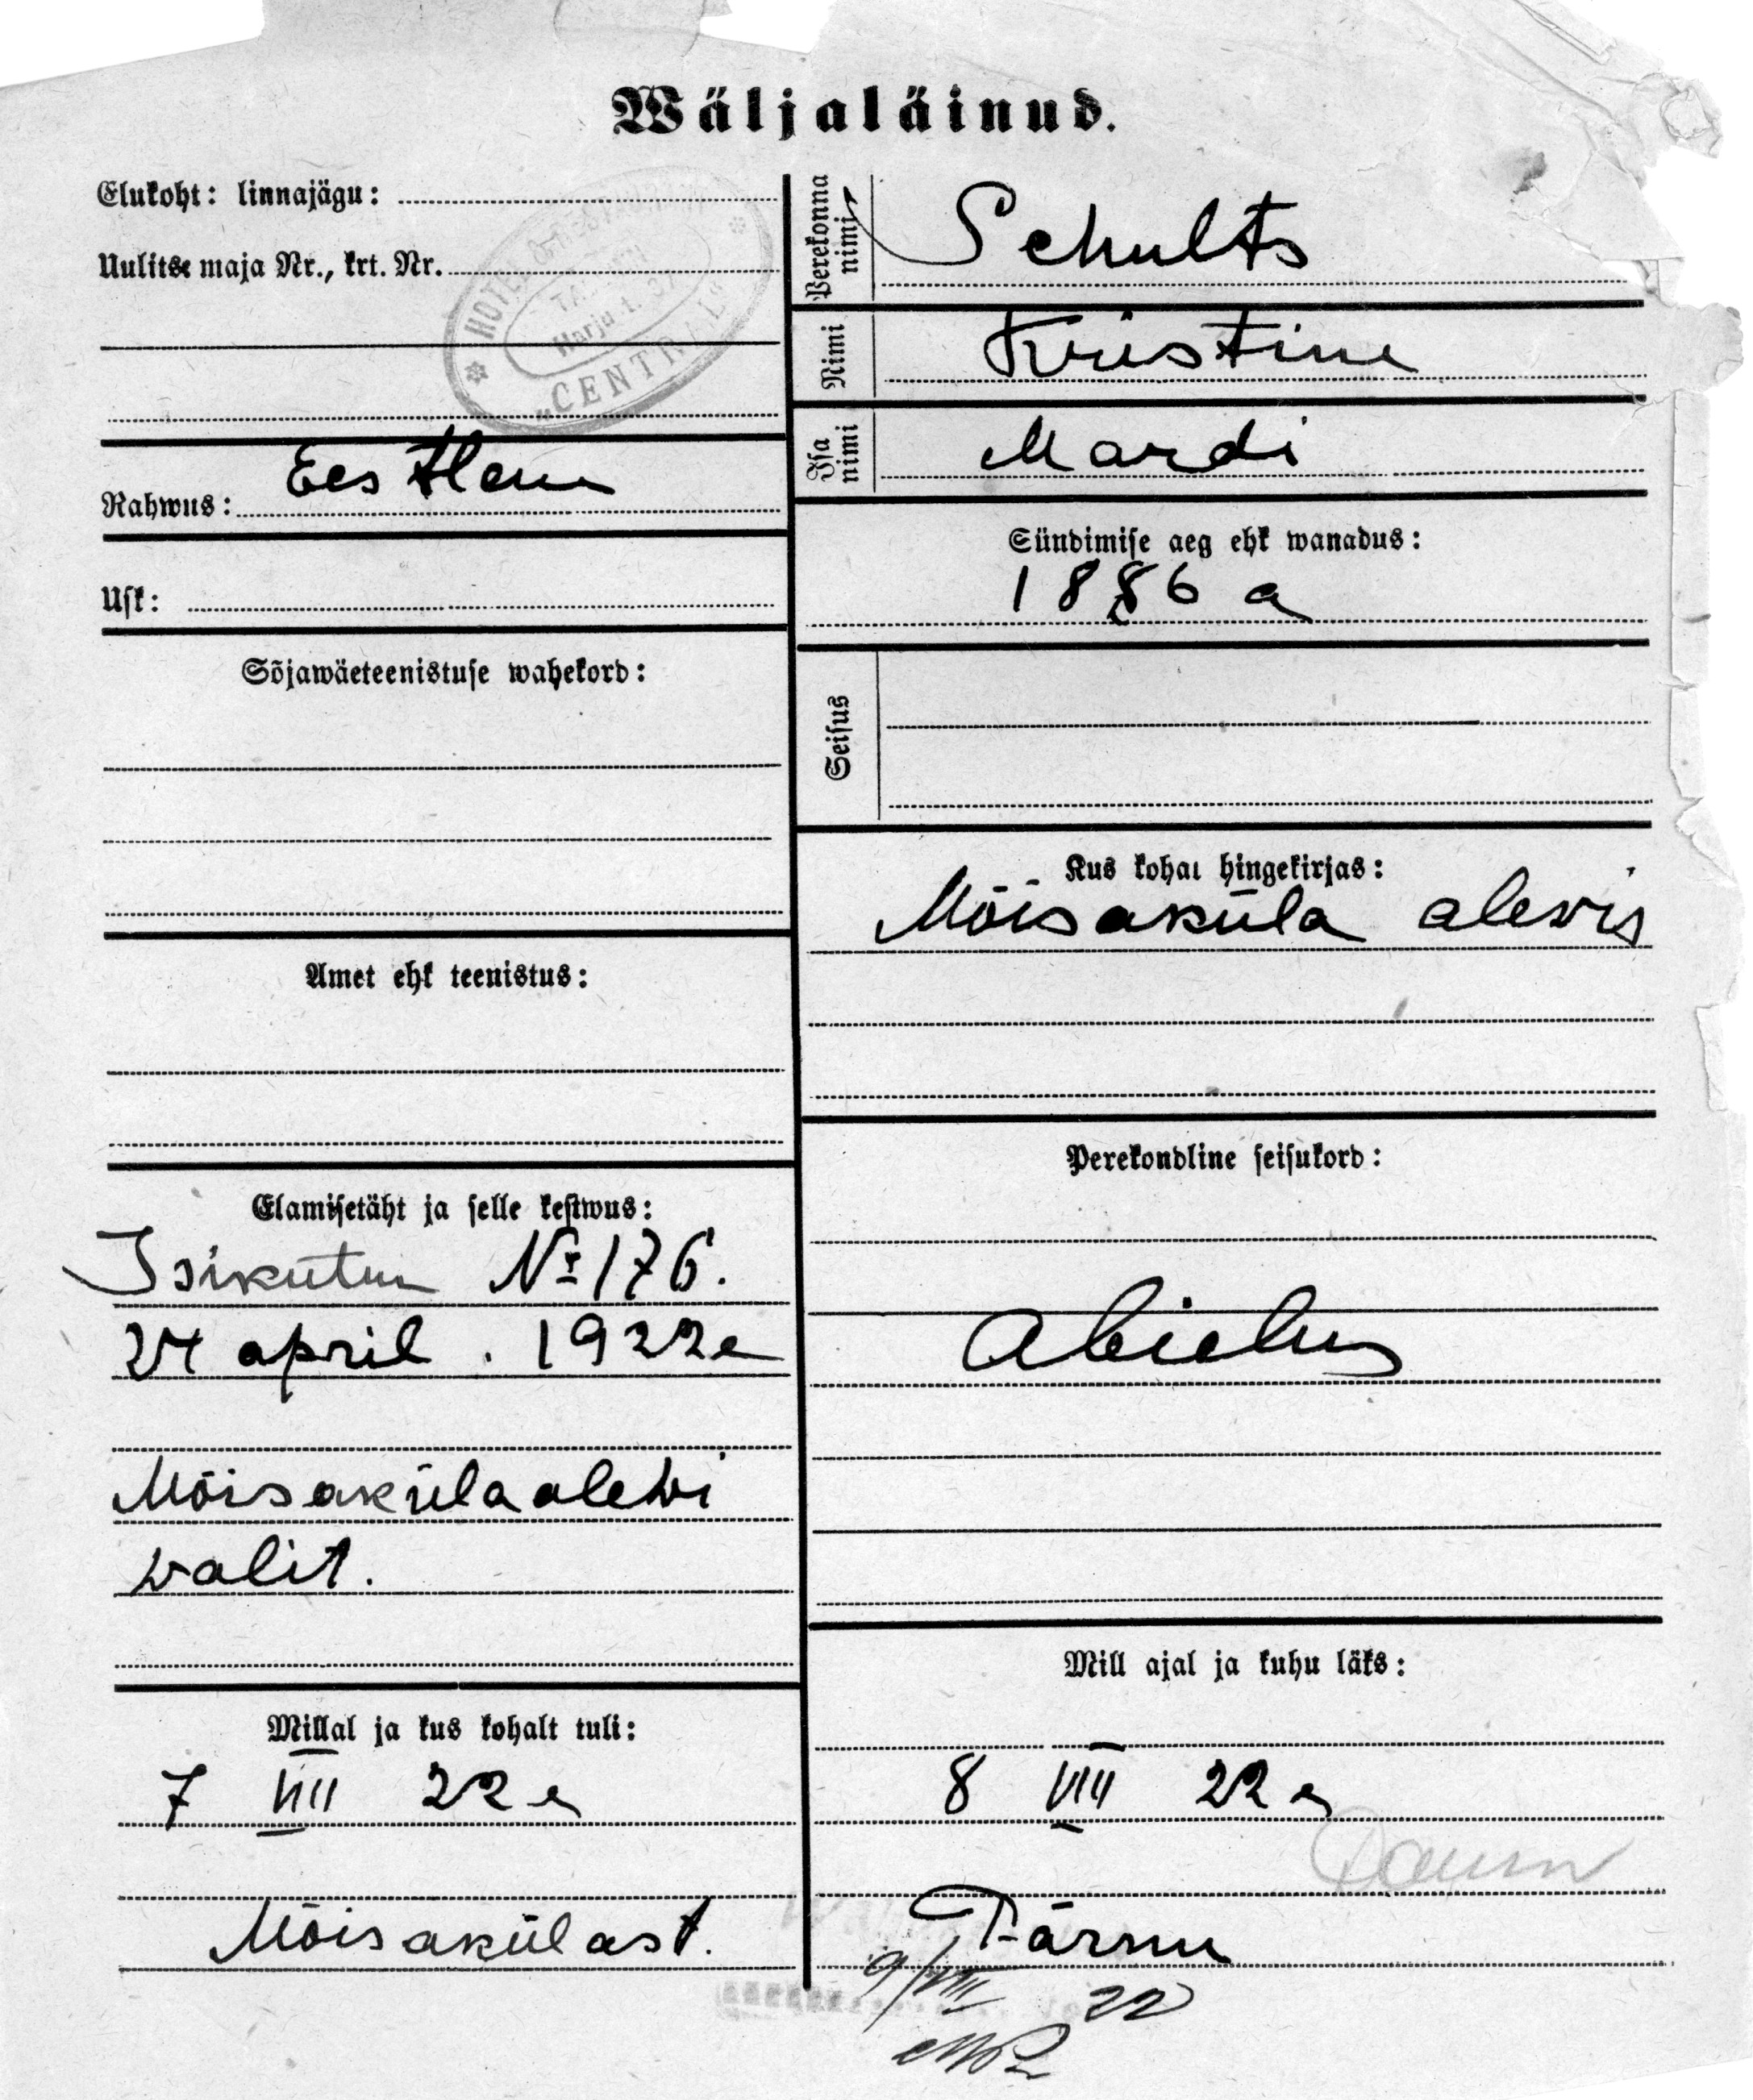 Wäljaläinud.
Elukoht: linnajägu:
Uulitse maja Nr., krt. Nr.
HOTEL
TALLINN
Harju t. 37
"CENTRAL"
Rahwus: Eestlane
Usk:
Sõjawäeteenistuse wahekord:
Amet ehk teenistus:
Elamisetäht ja selle kestwus:
Isikutun №176.
24 april. 1922 a
Mõisaküla alewi
walit.
Millal ja kus kohalt tuli:
7 VIII 22 a
Mõisakülast.
Perekonna nimi Schults
Nimi Kristine
Isa nimi Mardi
Sündimise aeg ehk wanadus:
1886 a
Seisus
Kus kohal hingekirjas:
Mõisaküla alewis
Perekondline seisukord:
abielus
Mill ajal ja kuhu läks:
8 VIII 22 a
Pärnu
9/VIII 22